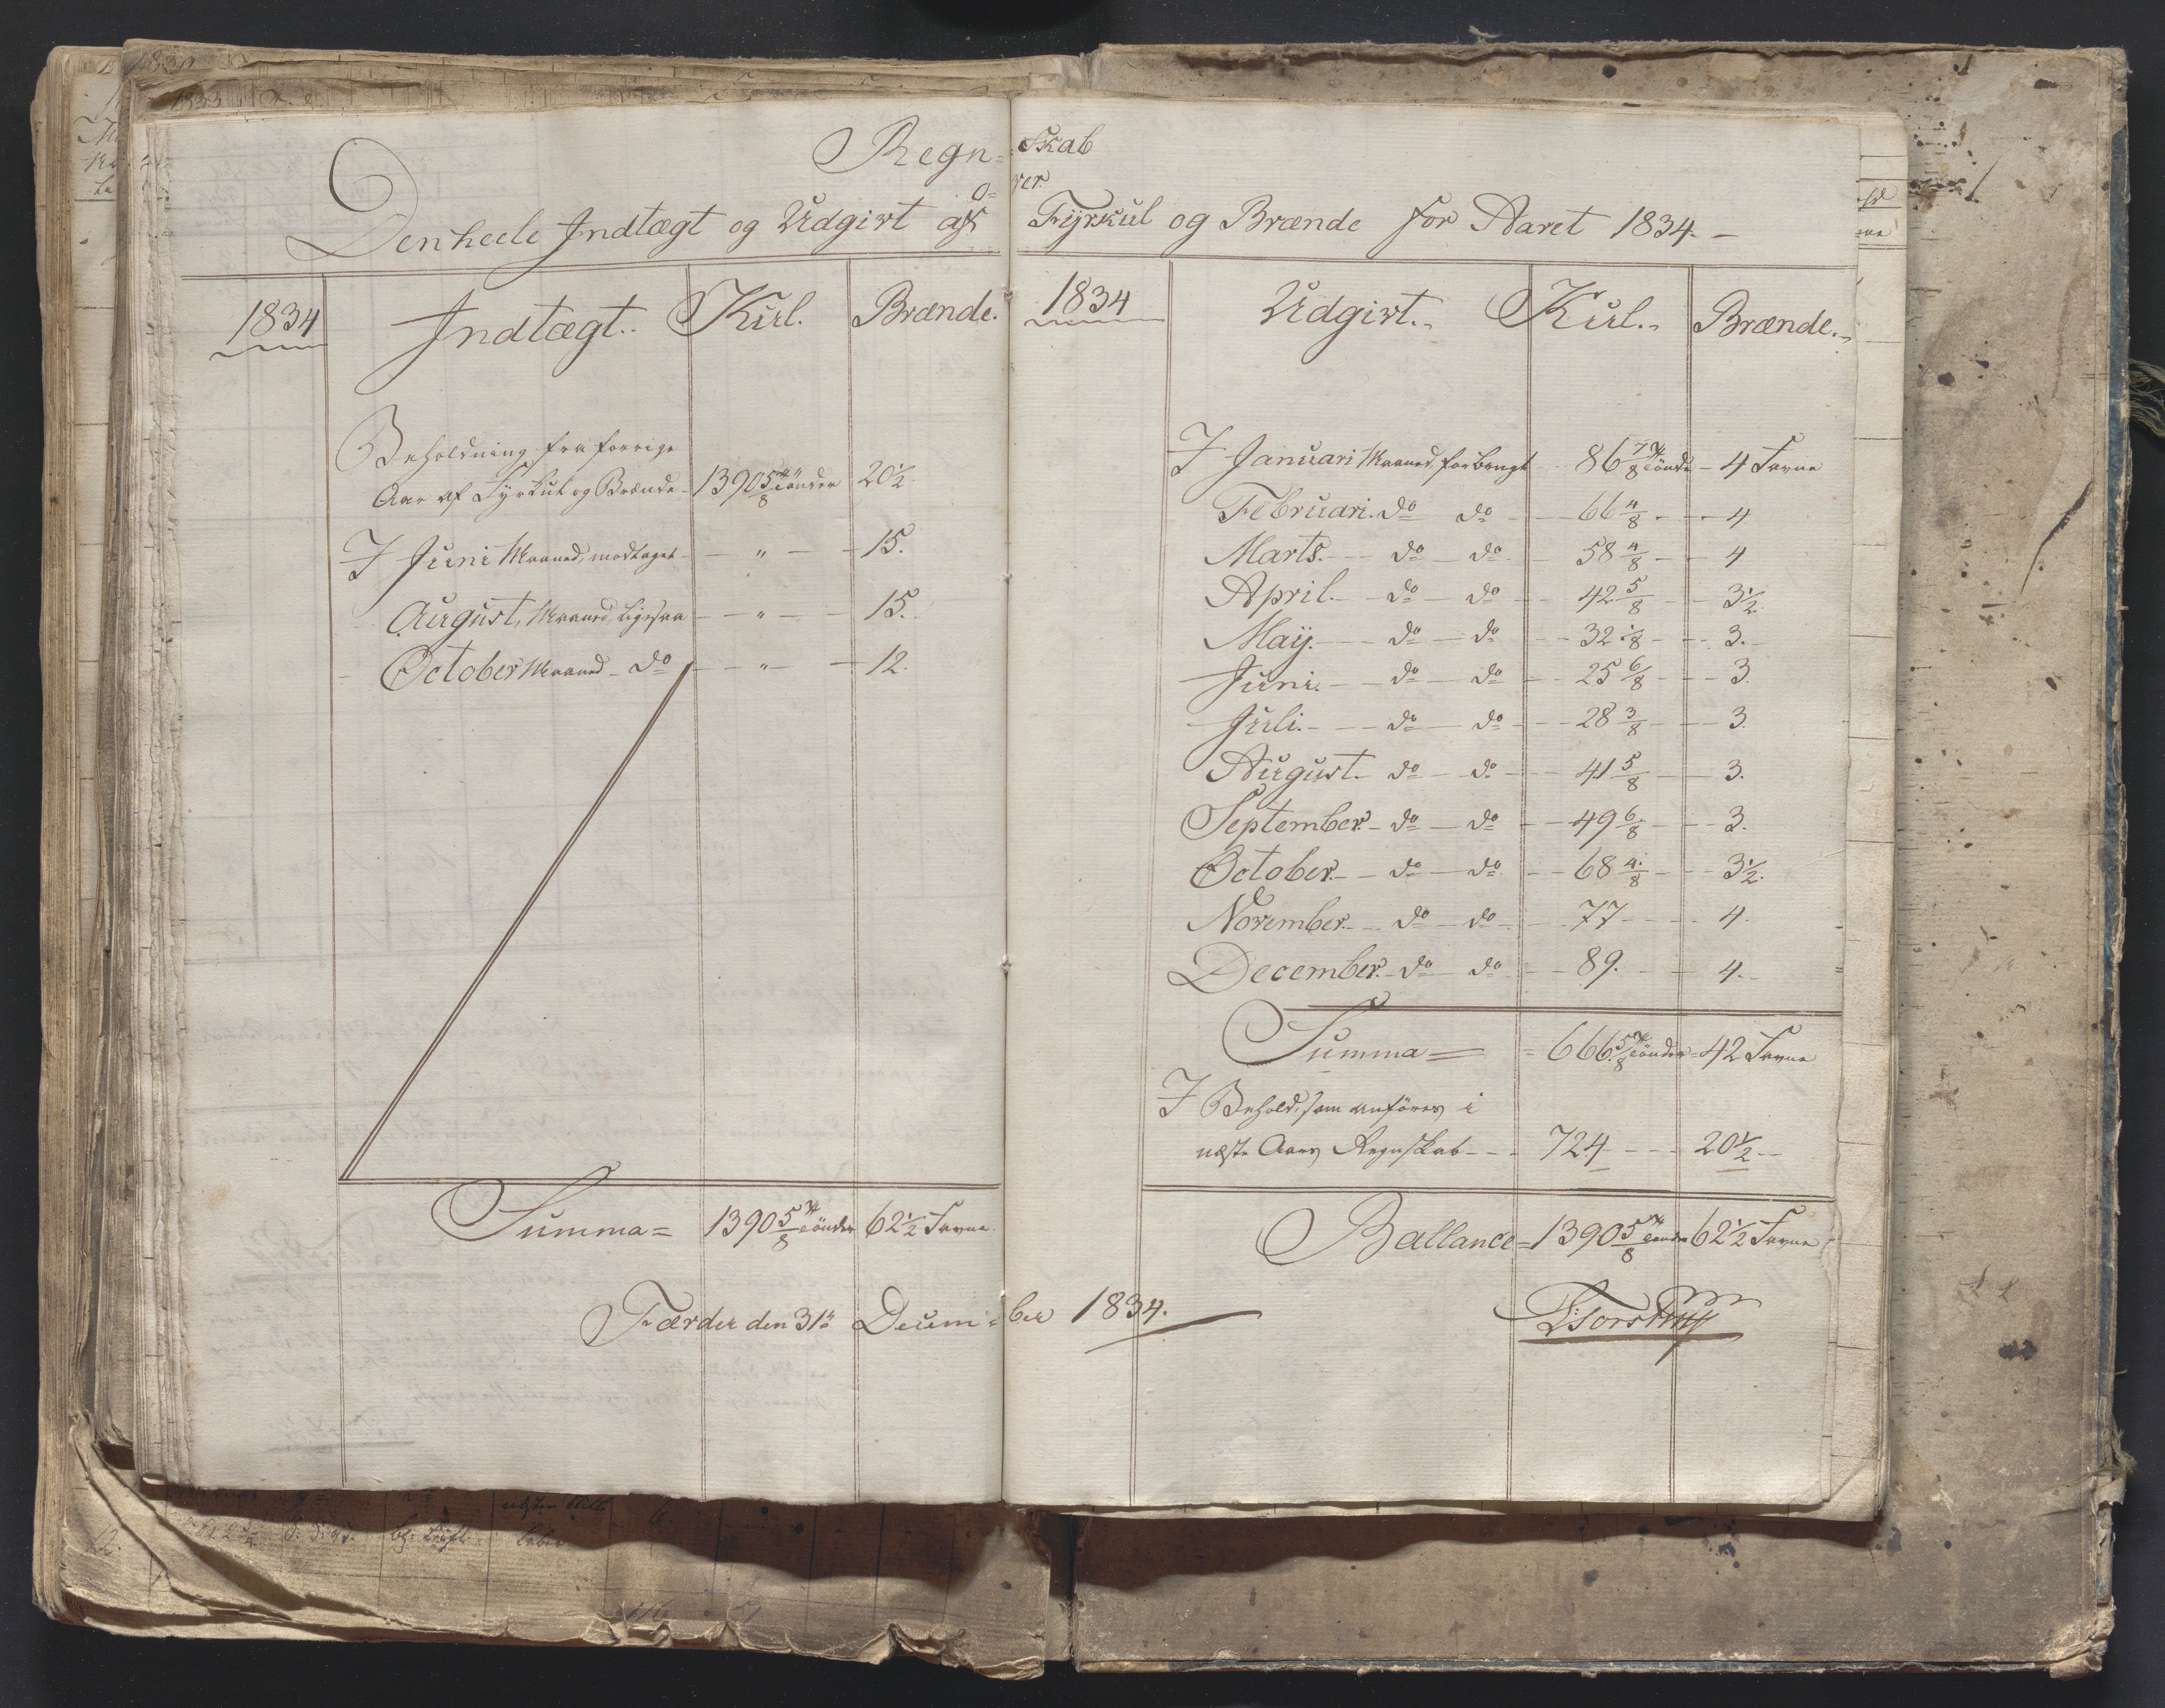 Regn= skab
o= ver
Den heele Indtægt og Udgivt af Fyrkul og Brænde for Aaret 1834.
1834 Indtægt. Kul. Brænde.
Beholdning fra forrige
Aar af Fyrkul og Brænde 1390 5/8 Tönder 20 1/2
I Juni Maaned, modtaget " 15.
August, Maaned, ligesaa " 15.
October Maaned do " 12.
Summa = 1390 5/8 Tönder 62 1/2 Favne
1834 Udgivt. Kul. Brænde.
I Januari Maaned, forbrugt 86 7/8 Tönde 4 Favne
Februari. do do 66 4/8 4
Marts. do do 58 4/8 4
April. do do 42 5/8 3 1/2
May. do do 32 1/8 3.
Juni. do do 25 6/8 3
Juli. do do 28 3/8 3.
August. do do 41 5/8 3.
September. do do 49 6/8 3.
October. do do 68 4/8 3 1/2.
November. do do 77 4
December. do do 89. 4.
Summa = 666 5/8 Tönder = 42 Favne
I Behold, som anföres i
næste Aars Regnskab 724 20 1/2
Ballance = 1390 5/8 Tönder 62 1/2 Favne
Færder den 31te Decem= ber 1834.